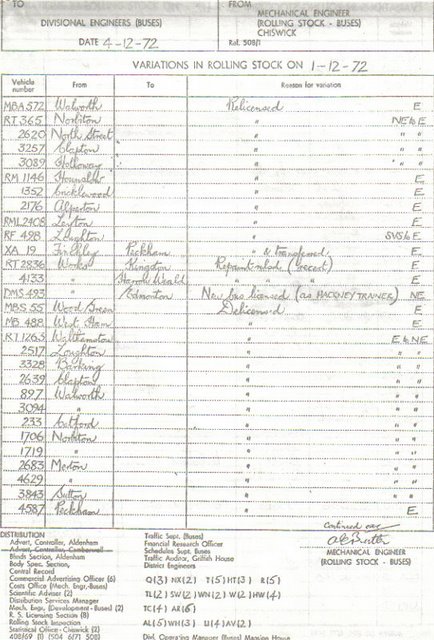 TO
FROM
DIVISIONAL ENGINEERS (BUSES)
MECHANICAL ENGINEER
(ROLLING STOCK - BUSES)
CHISWICK
DATE 4-12-72
Ref. 508/1
VARIATIONS IN ROLLING STOCK ON 1-12-72
Vehicle number From To Reason for variation
MBA 572 Walworth Relicensed E
RT 365 Norbiton " NE to E
2620 North Street " " "
3257 Clapton " " "
3089 Holloway " " "
RM 1146 Hounslow " E
1352 Cricklewood " E
2176 Alperton " E
RML 2408 Leyton " E
RF 498 Loughton " SVS to E
XA 19 Finchley Peckham " & transferred E
RT 2836 Works Kingston Repainted (recert) E
4133 " Harrow Weald " " " E
DMS 493 Edmonton New bus licensed (as HACKNEY TRAINER) NE
MBS 55 Wood Green Delicensed E
MB 488 West Ham " E
RT 1263 Walthamstow " E to NE
2517 Loughton " " "
3328 Barking " " "
2639 Clapton " " "
897 Walworth " " "
3094 " " " "
233 Catford " " "
1706 Norbiton " " "
1719 " " " "
2683 Merton " " "
4629 " " " "
3843 Sutton " " "
4587 Peckham " E
continued over
MECHANICAL ENGINEER
(ROLLING STOCK - BUSES)
DISTRIBUTION
Advert. Controller, Aldenham
Advert. Controller, Camberwell
Blinds Section, Aldenham
Body Spec. Section,
Central Record
Commercial Advertising Officer (6)
Costs Office (Mech. Engr.-Buses)
Scientific Adviser (2)
Distribution Services Manager
Mech. Engr. (Development - Buses) (2)
R. S. Licensing Section (8)
Rolling Stock Inspection
Statistical Office - Chiswick (2)
Traffic Supt. (Buses)
Financial Research Officer
Schedules Supt. Buses
Traffic Auditor, Griffith House
District Engineers
Q(3) NX(2) T(5) HT(3) R(5)
TL(2) SW(2) WN(2) W(2) HW(4)
TC(4) AR(6)
AL(5) WH(3) U(4) AV(2)
Divl. Operating Manager (Buses) Mansion House